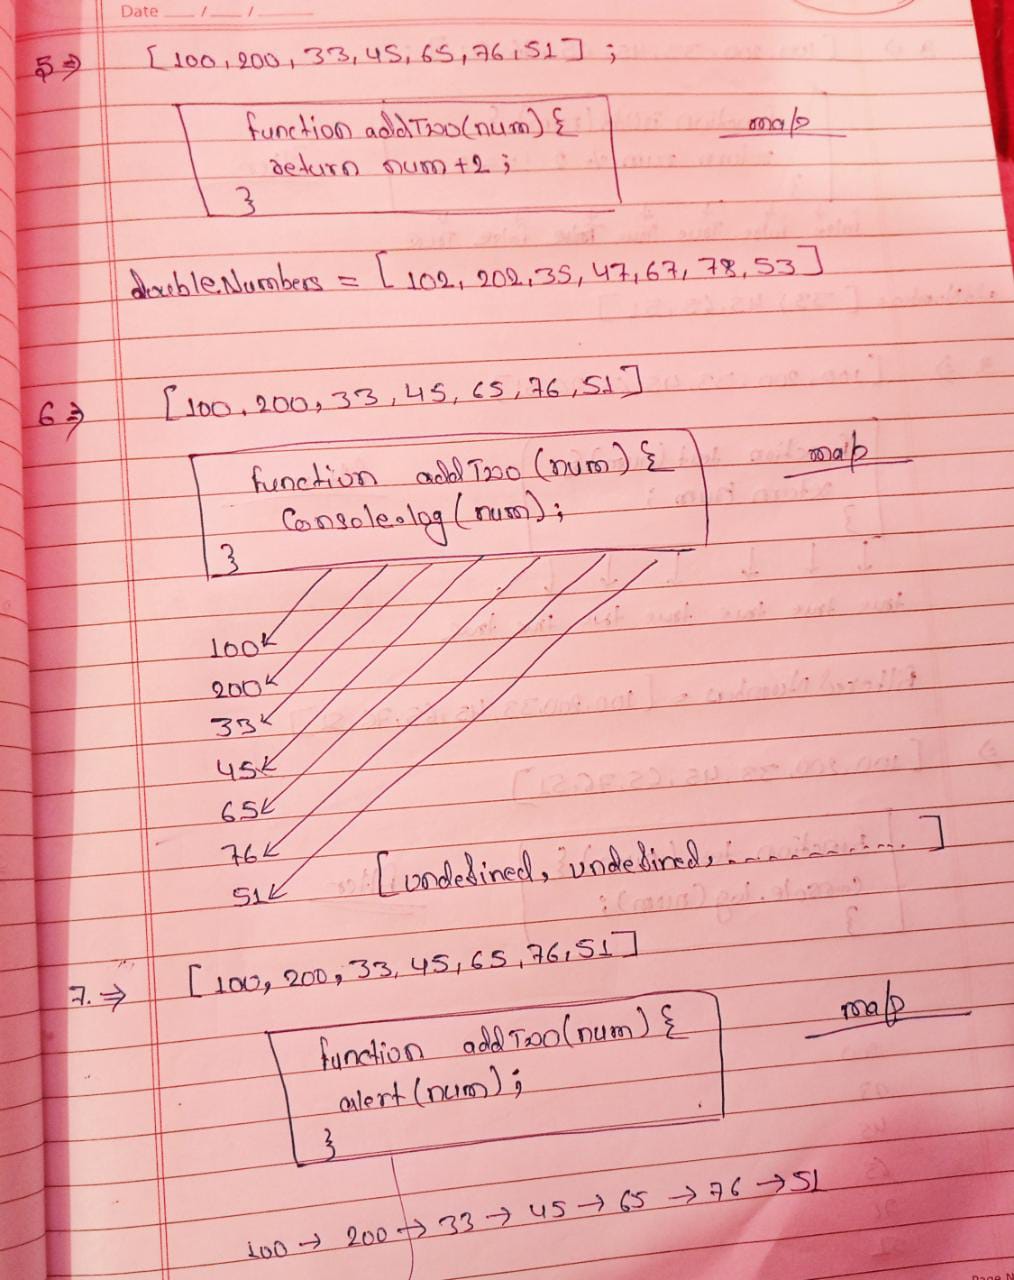 Date __/__/__
5 ⇒ [100, 200, 33, 45, 65, 76, 51] ;
function addTwo(num) {
return num + 2 ;
}
map
doubleNumbers = [102, 202, 35, 47, 67, 78, 53]
6 ⇒ [100, 200, 33, 45, 65, 76, 51]
function addTwo (num) {
Console.log (num) ;
}
map
100
200
33
45
65
76
51
[undefined, undefined, ............. ]
7. ⇒ [100, 200, 33, 45, 65, 76, 51]
function addTwo(num) {
alert (num) ;
}
map
100 → 200 → 33 → 45 → 65 → 76 → 51
Page N